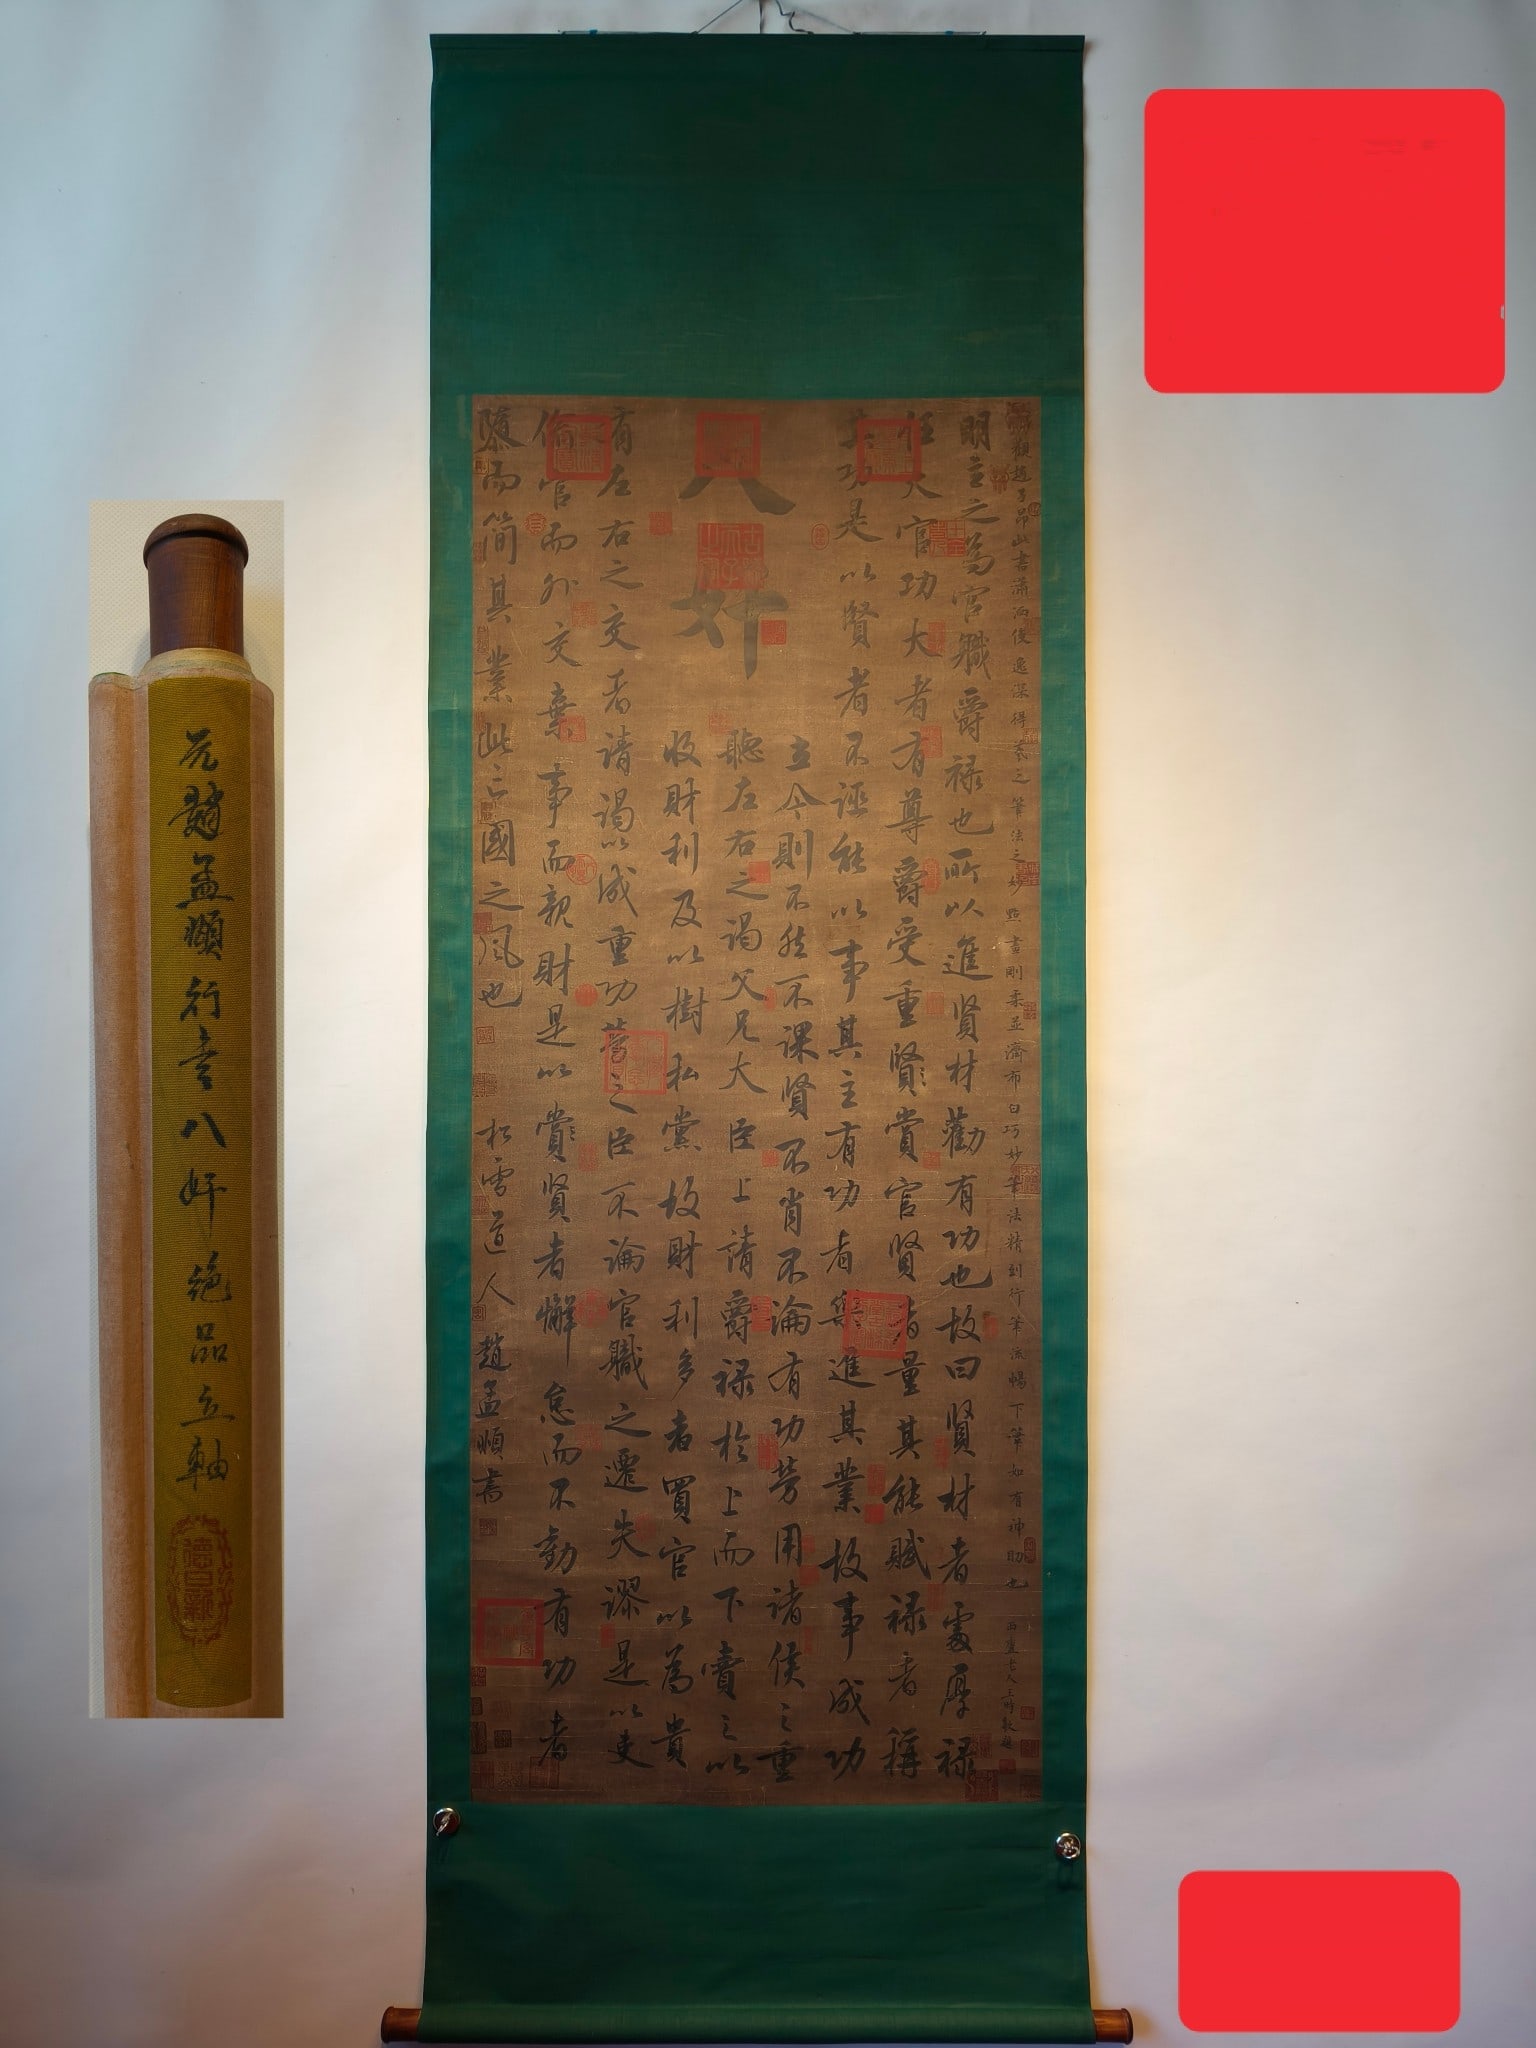 觀趙子昂此書瀟洒俊逸深得羲之筆法之妙點畫剛柔並濟布白巧妙筆法精到行筆流暢下筆如有神助也 西廬老人王時敏題
明主之為官職爵祿也所以進賢材勸有功也故曰賢材者處厚祿
任大官功大者有尊爵受重賢賞官賢者量其能賦祿者稱
其功是以賢者不誣能以事其主有功者樂進其業故事成功
八奸
立今則不然不課賢不肖不論有功勞用諸侯之重
聽左右之謁父兄大臣上請爵祿於上而下賣之以
收財利及以樹私黨故財利多者買官以為貴
有左右之交者請謁以成重功勞之臣不論官職之遷失謬是以吏
偷官而外交棄事而親財是以賞賢者懈怠而不勸有功者
隳而簡其業此亡國之風也 松雪道人趙孟頫書
元趙孟頫行書八奸絕品立軸
德日新